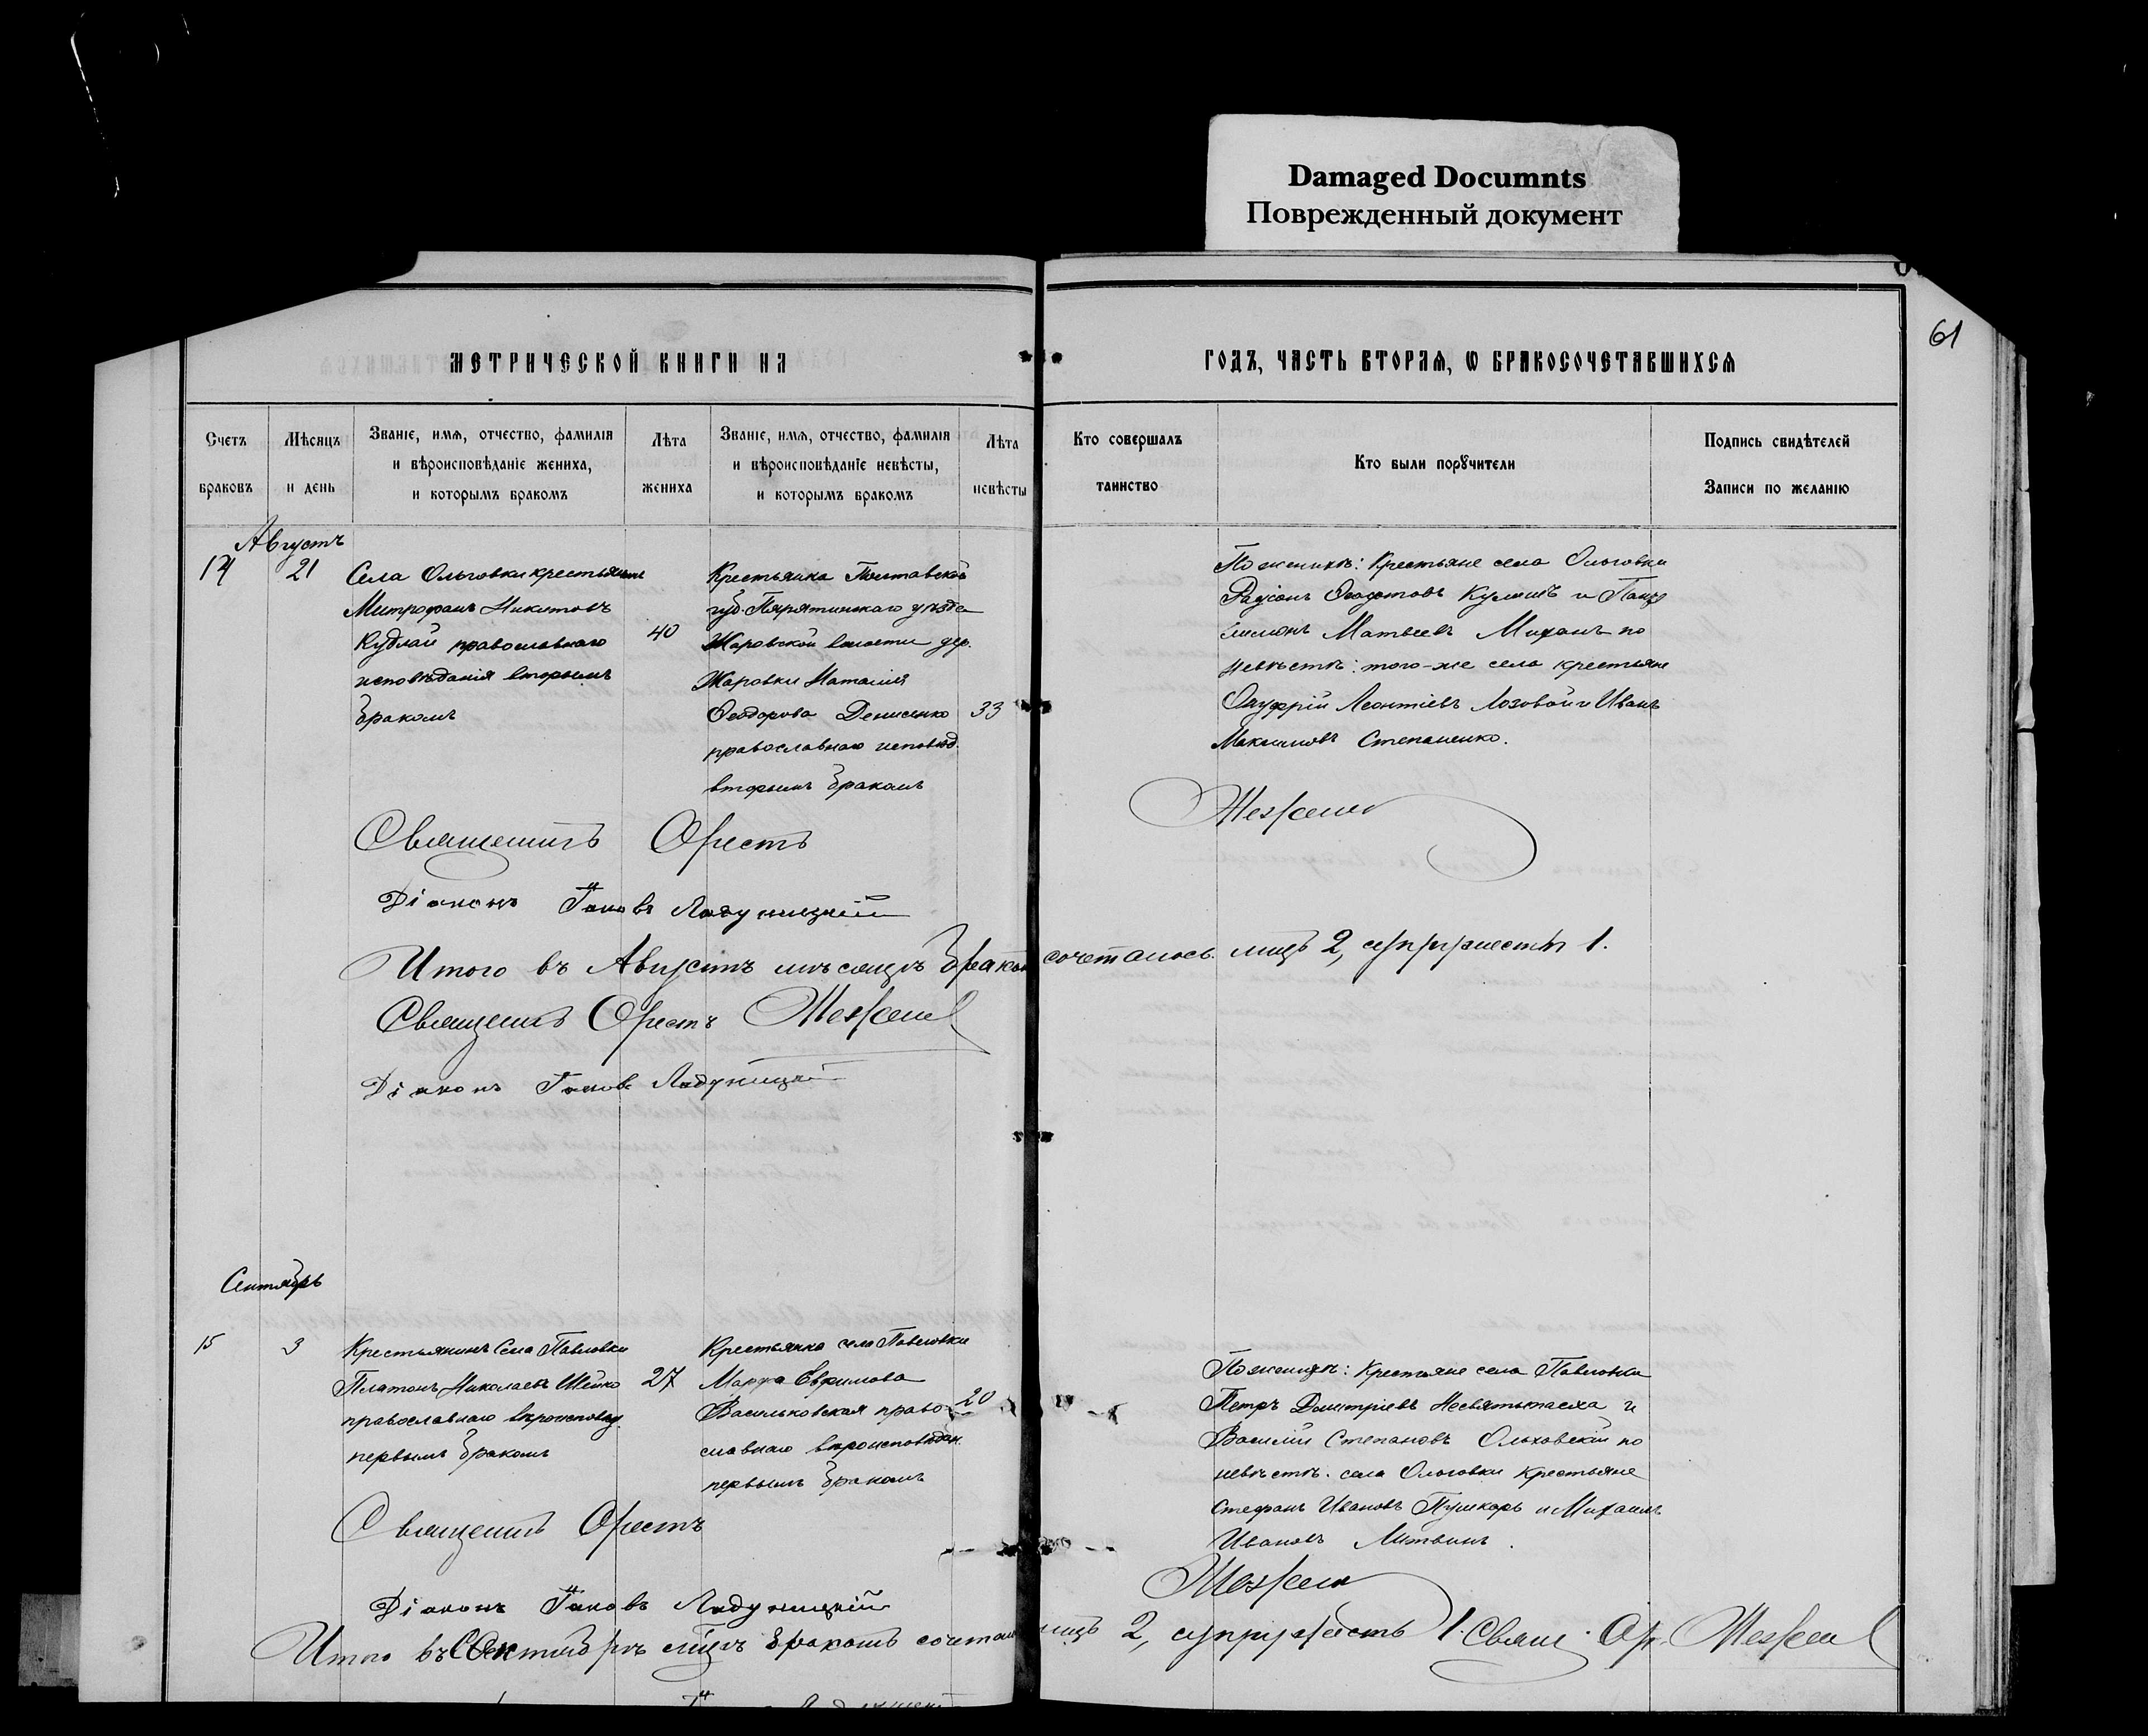 Damaged Documnts
Поврежденный документ
61
МЕТРИЧЕСКОЙ КНИГИ НА
ГОДЪ, ЧАСТЬ ВТОРАЯ, Ѡ БРАКОСОЧЕТАВШИХСЯ
Счетъ браковъ
Мѣсяцъ и день
Званіе, имя, отчество, фамилія
и вѣроисповѣданіе жениха,
и которымъ бракомъ
Лѣта жениха
Званіе, имя, отчество, фамилія
и вѣроисповѣданіе невѣсты,
и которымъ бракомъ
Лѣта невѣсты
Кто совершалъ
таинство
Кто были порꙋчители
Подпись свидѣтелей
Записи по желанію
Августъ
14
21
Села Ольговки крестьянинъ
Митрофанъ Никитовъ
Кублай православнаго
исповѣданія вторымъ
бракомъ
40
Крестьянка Полтавской
губ. Пирятинскаго уѣзда
Жаровской волости дер.
Жаровки Наталія
Ѳеодорова Денисенко
православнаго исповѣд.
вторымъ бракомъ
33
По женихѣ: Крестьяне села Ольговки
Родіонъ Ѳеодотовъ Кулишъ и
Матвеевъ по
невѣстѣ: того-же села крестьяне
Онуфрій Леонтіевъ Лозовой и Иванъ
Максимовъ Степаненко.
Священникъ Орестъ
Діаконъ Іаковъ Ладуницкій
Итого въ Августѣ мѣсяцѣ бракомъ сочеталось лицъ 2, супружествъ 1.
Священникъ Орестъ
Діаконъ Іаковъ Ладуницкій
Сентябрь
15
3
Крестьянинъ Села Павловки
Платонъ Николаевъ Шейко
православнаго вѣроисповѣд.
первымъ бракомъ
27
Крестьянка села Павловки
Марфа Евфимова
Васильковская право-
славнаго вѣроисповѣдан.
первымъ бракомъ
20
По женихѣ: Крестьяне села Павловки
Петръ Димитріевъ Несвятыпасха и
Василій Степановъ Ольховскій по
невѣстѣ: села Ольговки крестьяне
Стефанъ Ивановъ Пушкарь и Михаилъ
Ивановъ Литвинъ.
Священникъ Орестъ
Діаконъ Іаковъ Ладуницкій
Итого въ Сентябрѣ мѣсяцѣ бракомъ лицъ 2, супружествъ 1. Свящ. Ор.